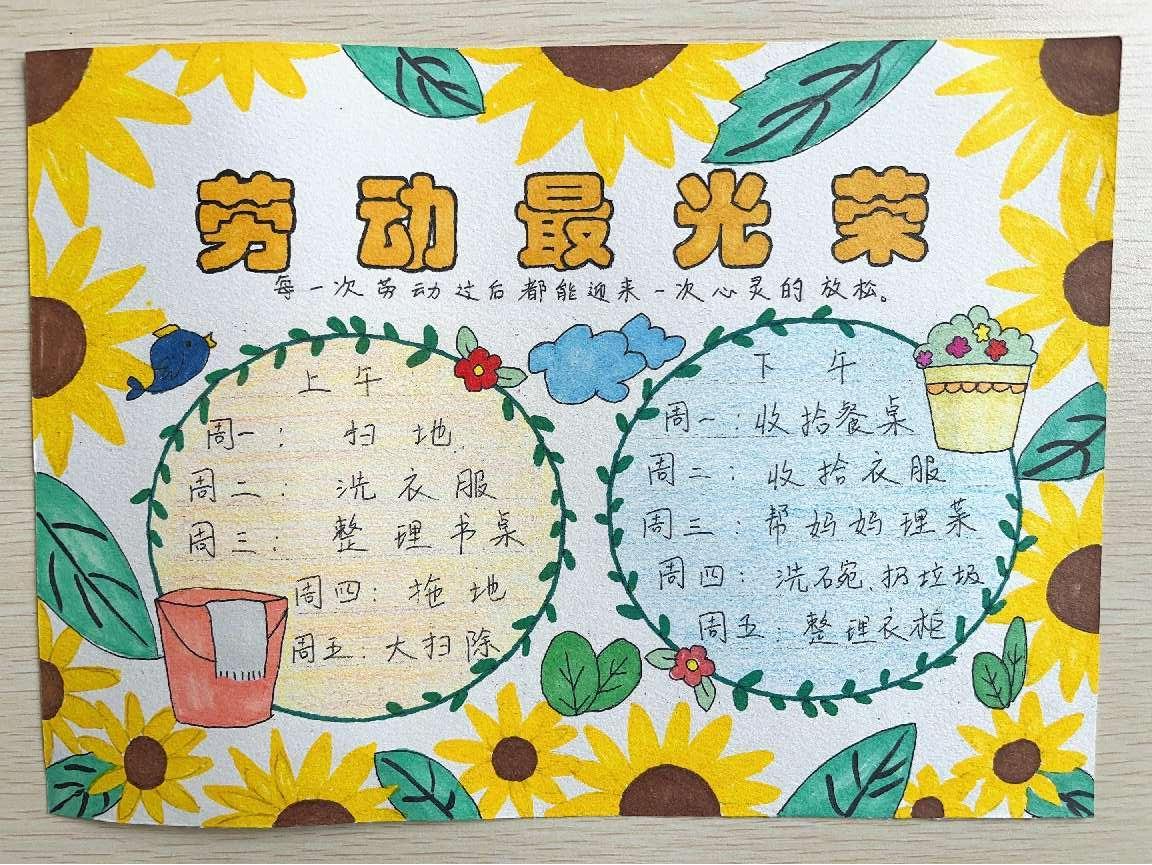 劳动最光荣
每一次劳动过后都能迎来一次心灵的放松。
上午
周一：扫地
周二：洗衣服
周三：整理书桌
周四：拖地
周五：大扫除
下午
周一：收拾餐桌
周二：收拾衣服
周三：帮妈妈理菜
周四：洗碗.扔垃圾
周五：整理衣柜